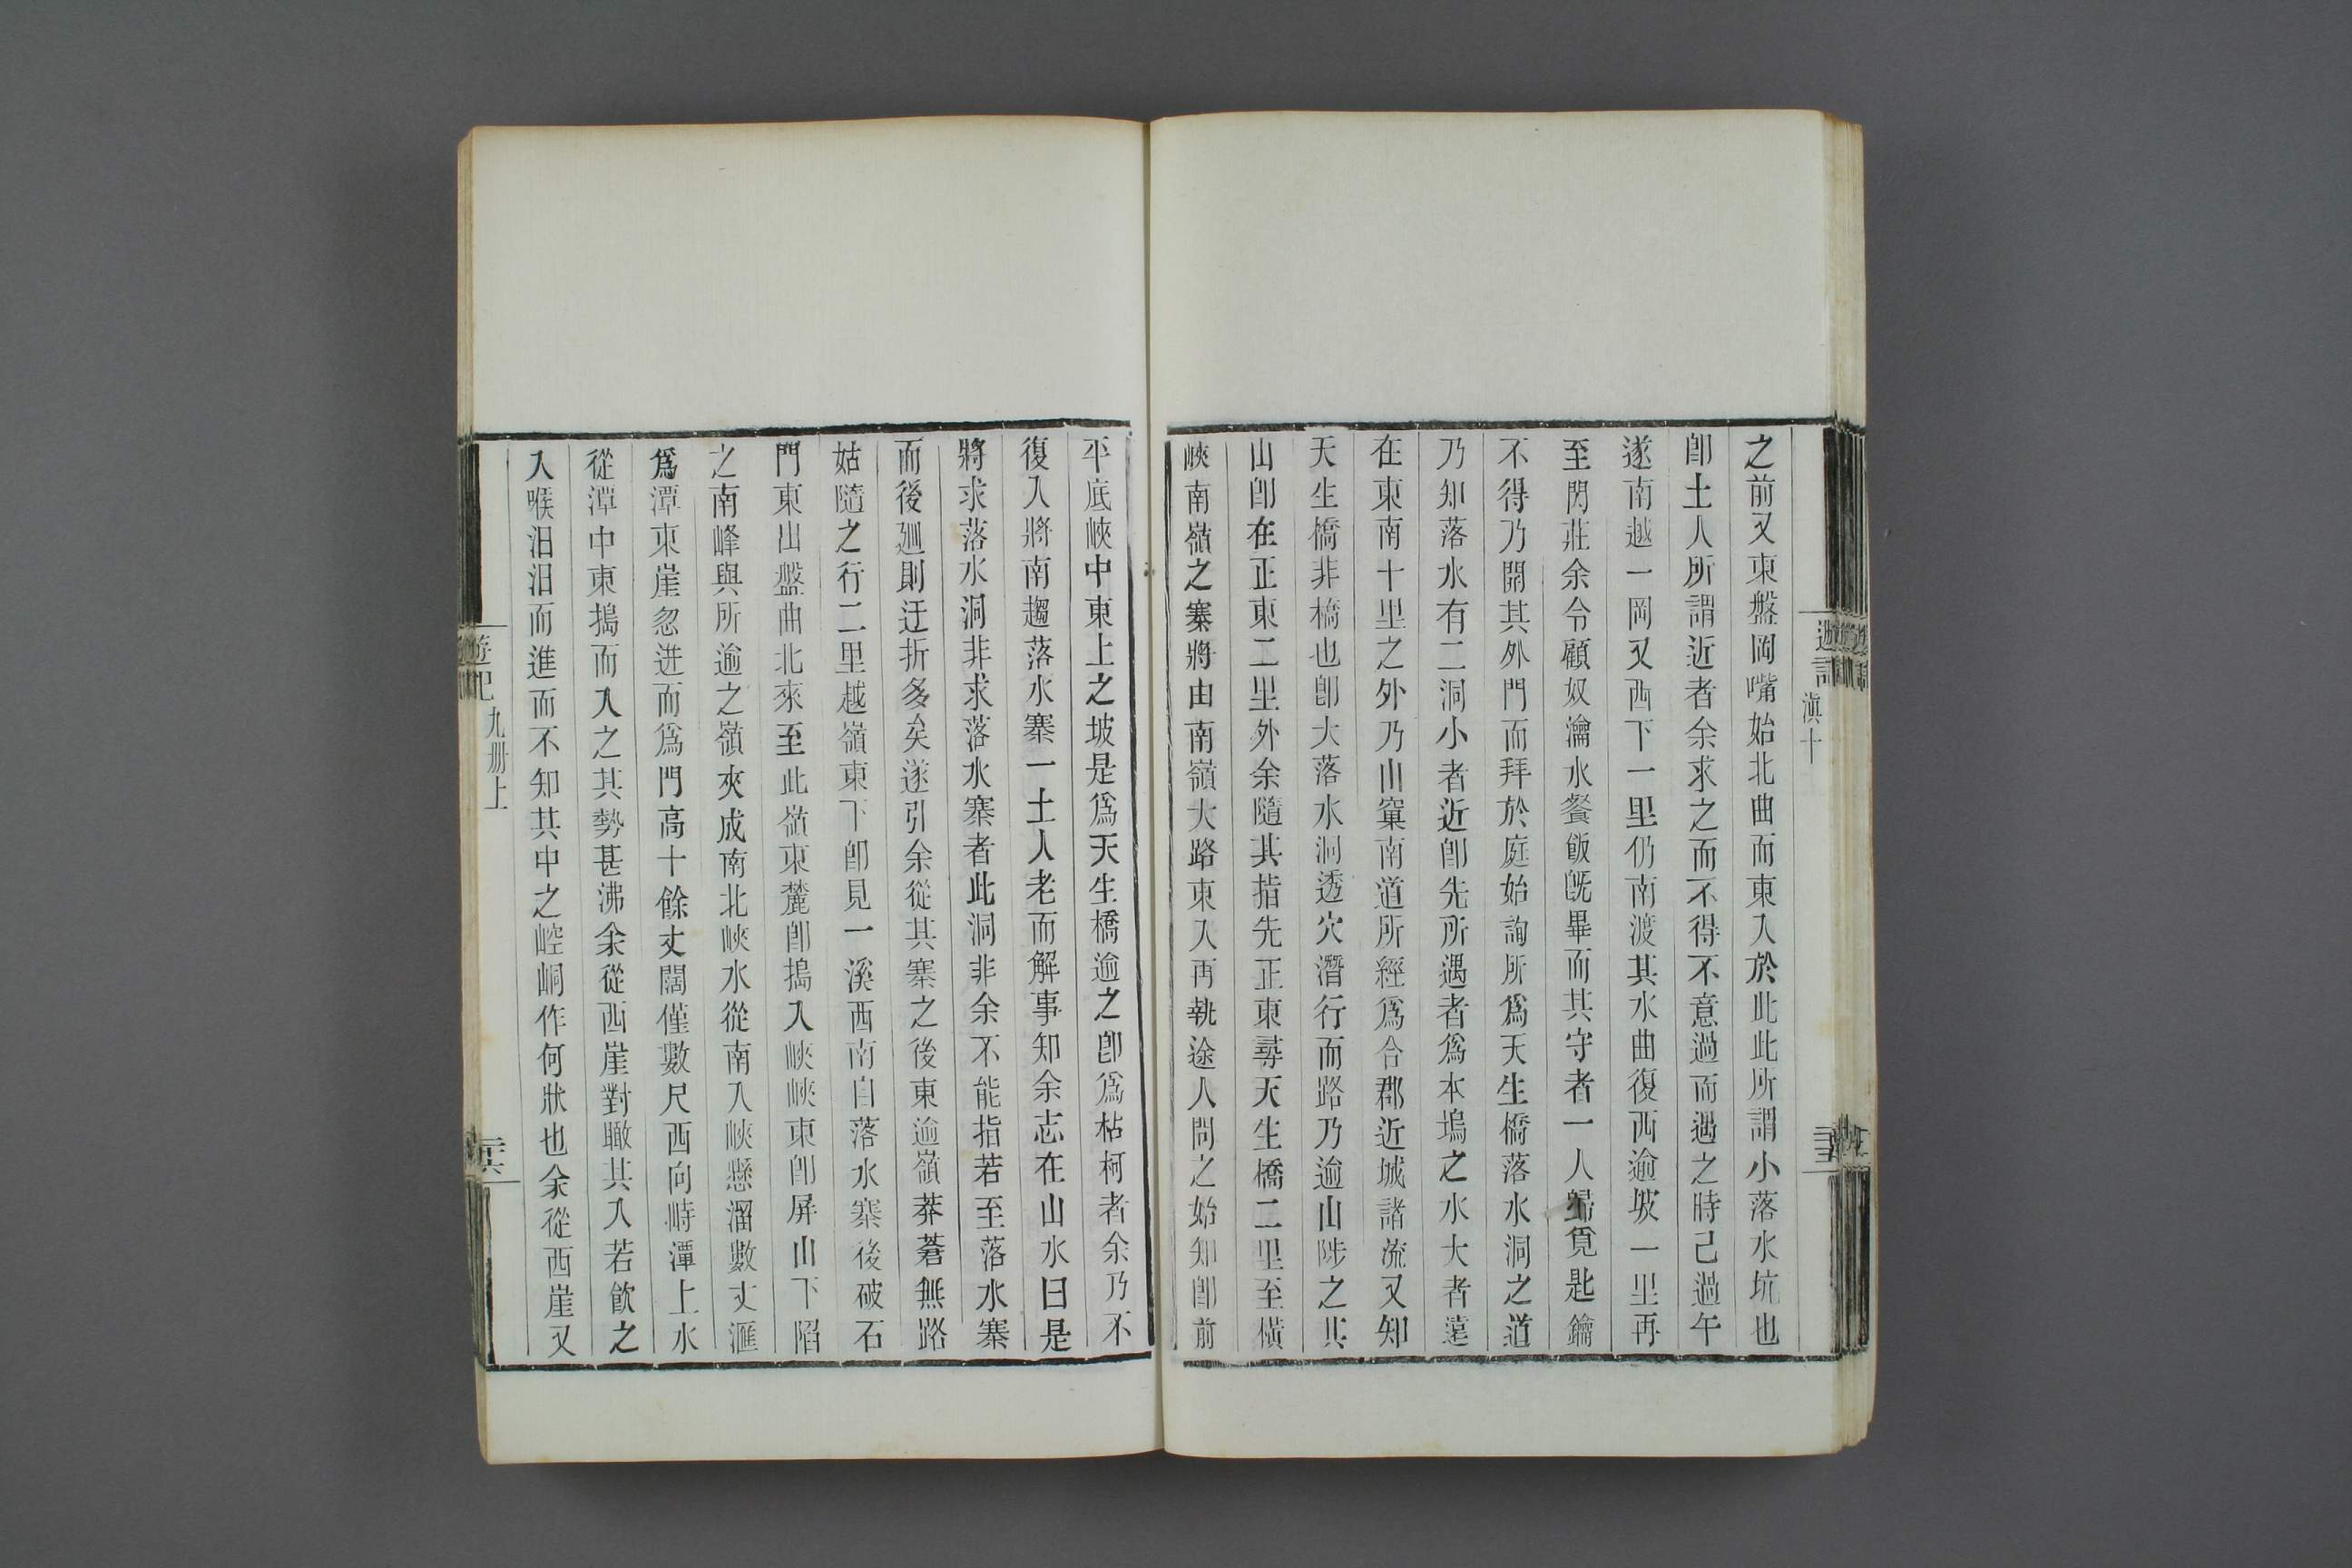 遊記
滇十
之前又東盤岡嘴始北曲而東入於此此所謂小落水坑也
卽土人所謂近者余求之而不得不意過而遇之時已過午
遂南越一岡又西下一里仍南渡其水曲復西逾坡一里再
至閃莊余令顧奴瀹水餐飯旣畢而其守者一人歸覓匙鑰
不得乃開其外門而拜於庭始詢所爲天生橋落水洞之道
乃知落水有二洞小者近卽先所遇者爲本塢之水大者遠
在東南十里之外乃山窠南道所經爲合郡近城諸流又知
天生橋非橋也卽大落水洞透穴潛行而路乃逾山陟之其
山卽在正東二里外余隨其指先正東尋天生橋二里至橫
峽南嶺之寨將由南嶺大路東入再執途人問之始知卽前
平底峽中東上之坡是爲天生橋逾之卽爲枯柯者余乃不
復入將南趨落水寨一土人老而解事知余志在山水曰是
將求落水洞非求落水寨者此洞非余不能指若至落水寨
而後廻則迂折多矣遂引余從其寨之後東逾嶺莽蒼無路
姑隨之行二里越嶺東下卽見一溪西南自落水寨後破石
門東出盤曲北來至此嶺東麓卽搗入峽峽東卽屏山下陷
之南峰與所逾之嶺夾成南北峽水從南入峽懸溜數丈滙
爲潭東崖忽迸而爲門高十餘丈闊僅數尺西向峙潭上水
從潭中東搗而入之其勢甚沸余從西崖對瞰其入若飮之
入喉汩汩而進而不知其中之崆峒作何狀也余從西崖又
遊記
九冊上